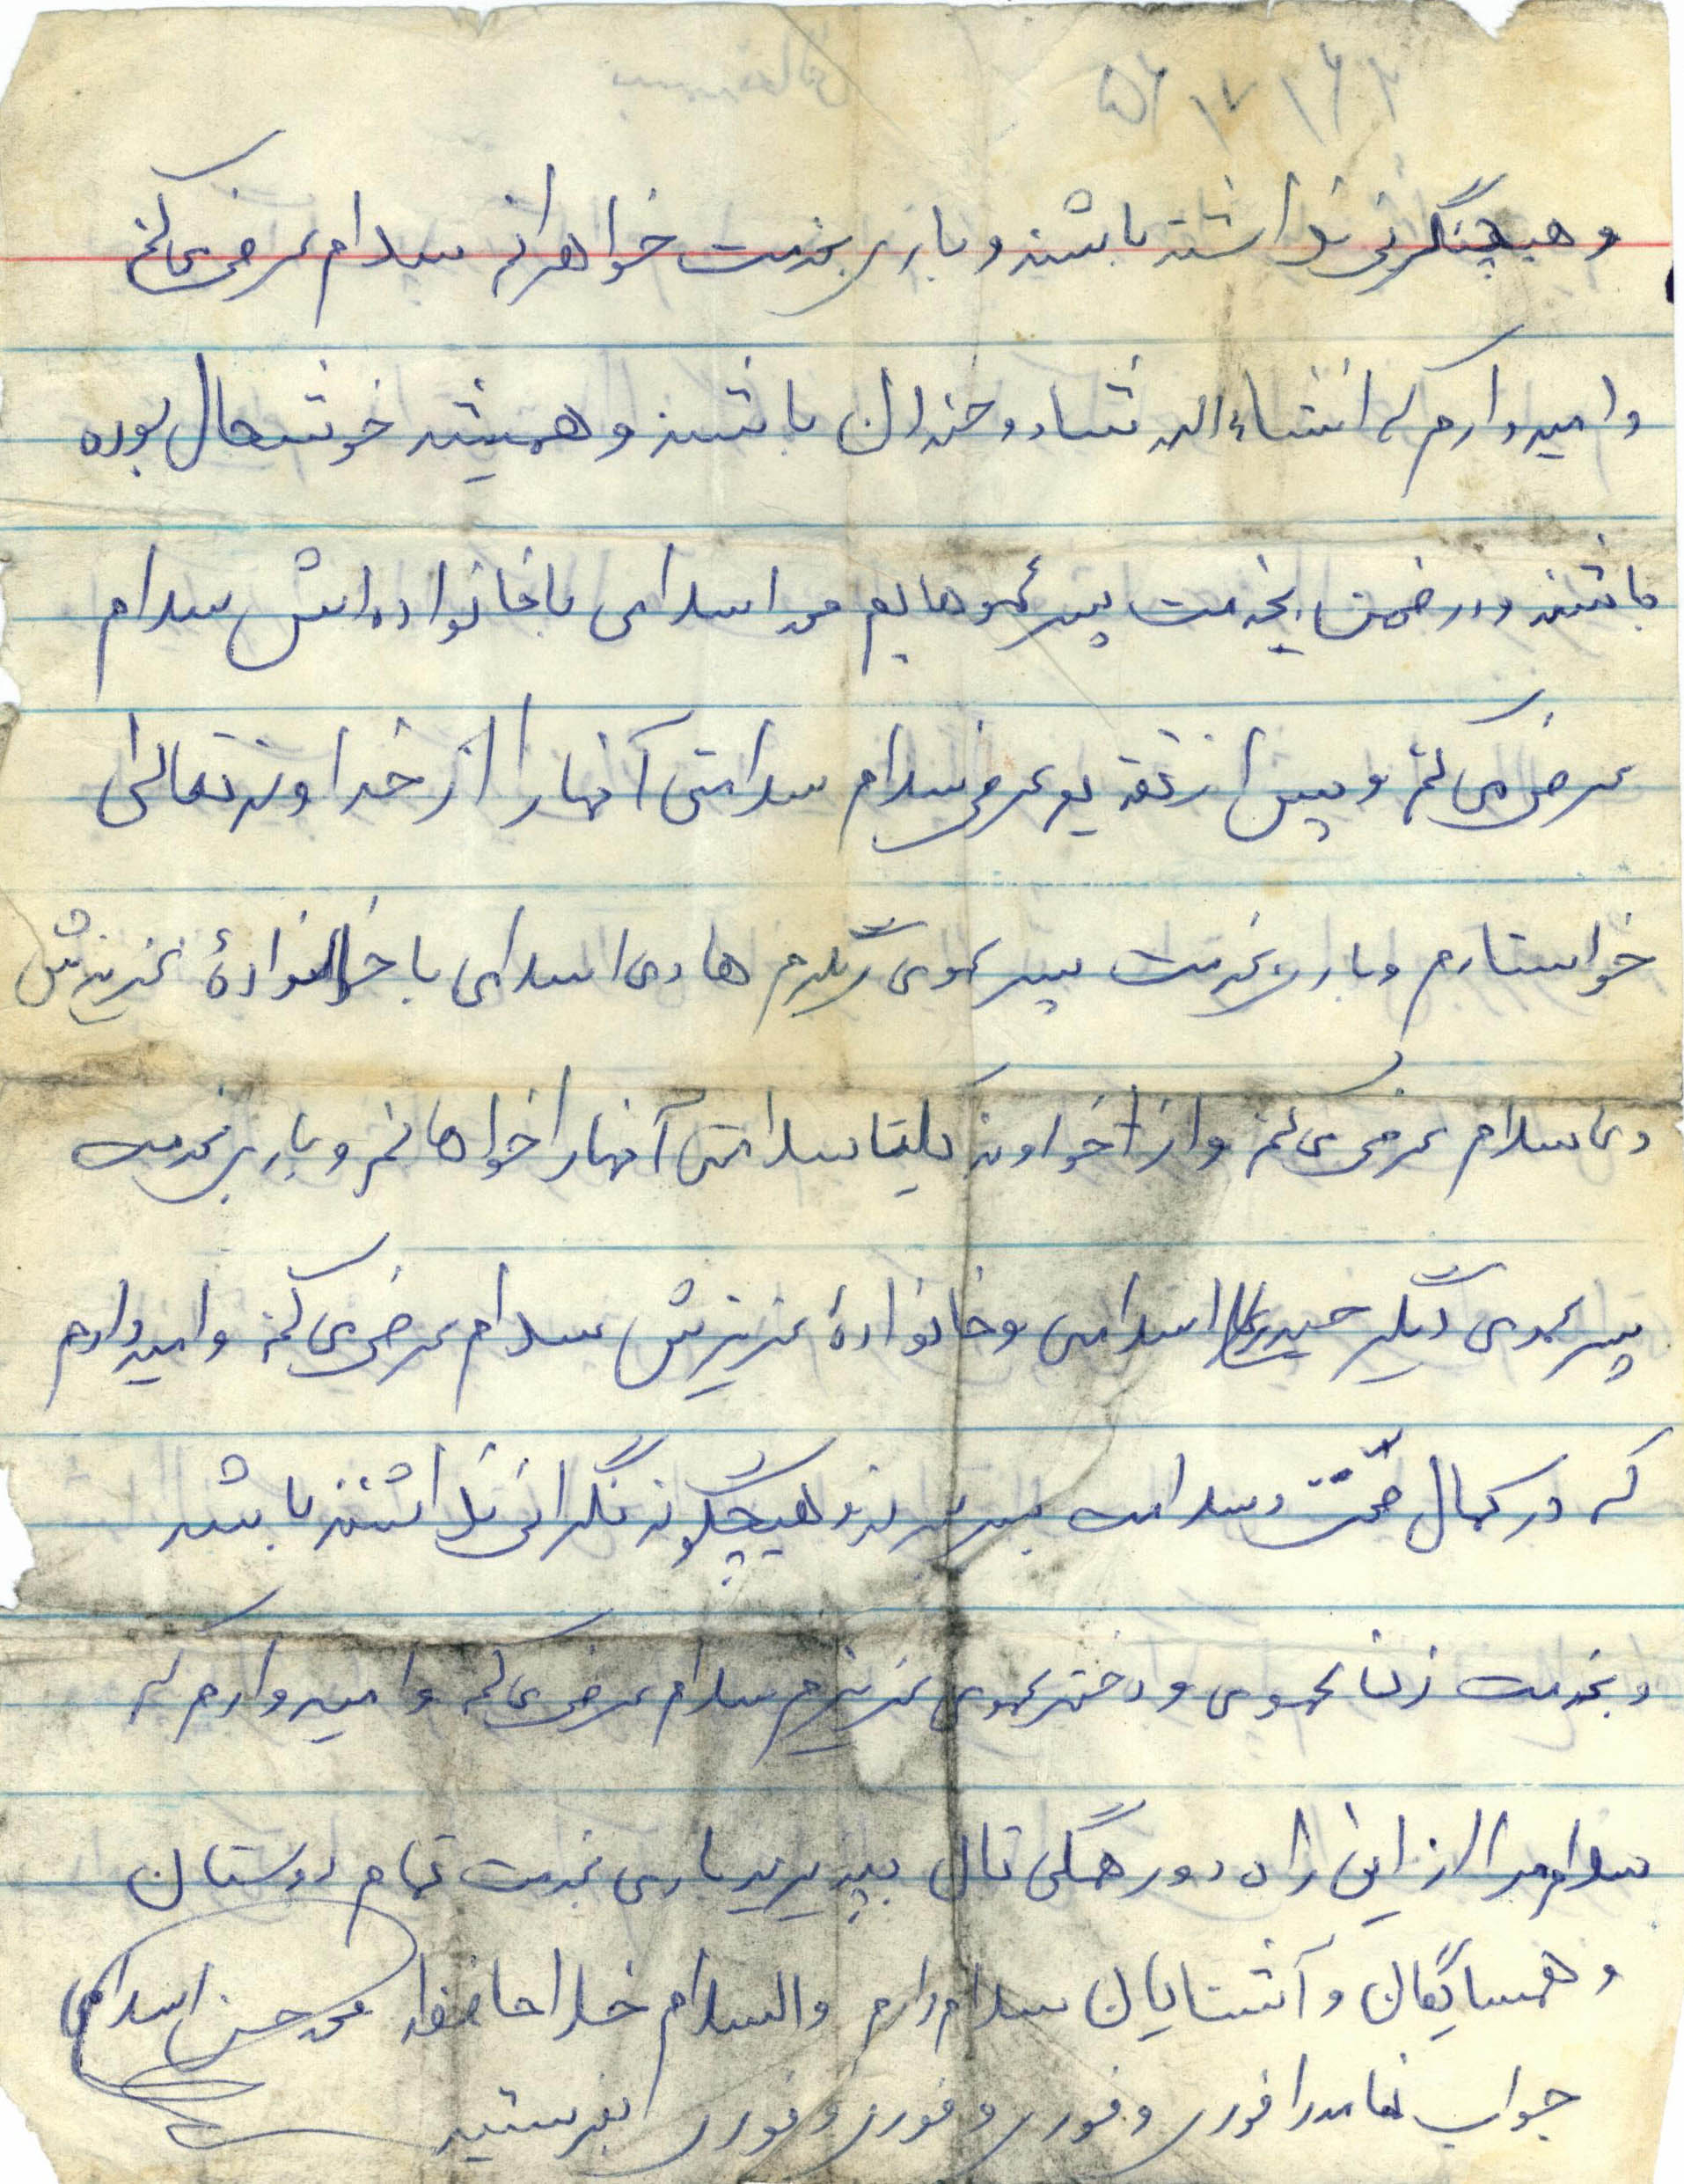 و هیچنگرانی نداشته باشند و باری بخدمت خواهرانم سلام عرض می کنم
و امیدوارم که انشاءالله شاد و خندان باشند و همیشه خوشحال بوده
باشند و در ضمن بخدمت پسر عموهایم محمد اسلامی با خانواده اش سلام
عرض می کنم و پس از تقدیم عرض سلام سلامتی آنها را از خداوند تعالی
خواستارم و باری بخدمت پسر عموی دیگرم هادی اسلامی با خانوادهٔ عزیزش
سلام عرض می کنم و از خداوند یکتا سلامتی آنها را خواهانم و باری بخدمت
پسر عموی دیگر حیدرعلی اسلامی و خانوادهٔ عزیزش سلام عرض می کنم و امیدوارم
که در کمال صحّت و سلامت بسر ببرند و هیچگونه نگرانی نداشته باشند
و بخدمت زن عموی و دختر عموی عزیزم سلام عرض می کنم و امیدوارم که
سلام مرا از این راه دور همگی تان بپذیرید باری بخدمت تمام دوستان
و همسایگان و آشنایان سلام دارم والسلام خدا حافظ محمد حسن اسلامی
جواب نامه را فوری و فوری و فوری و فوری بفرستید